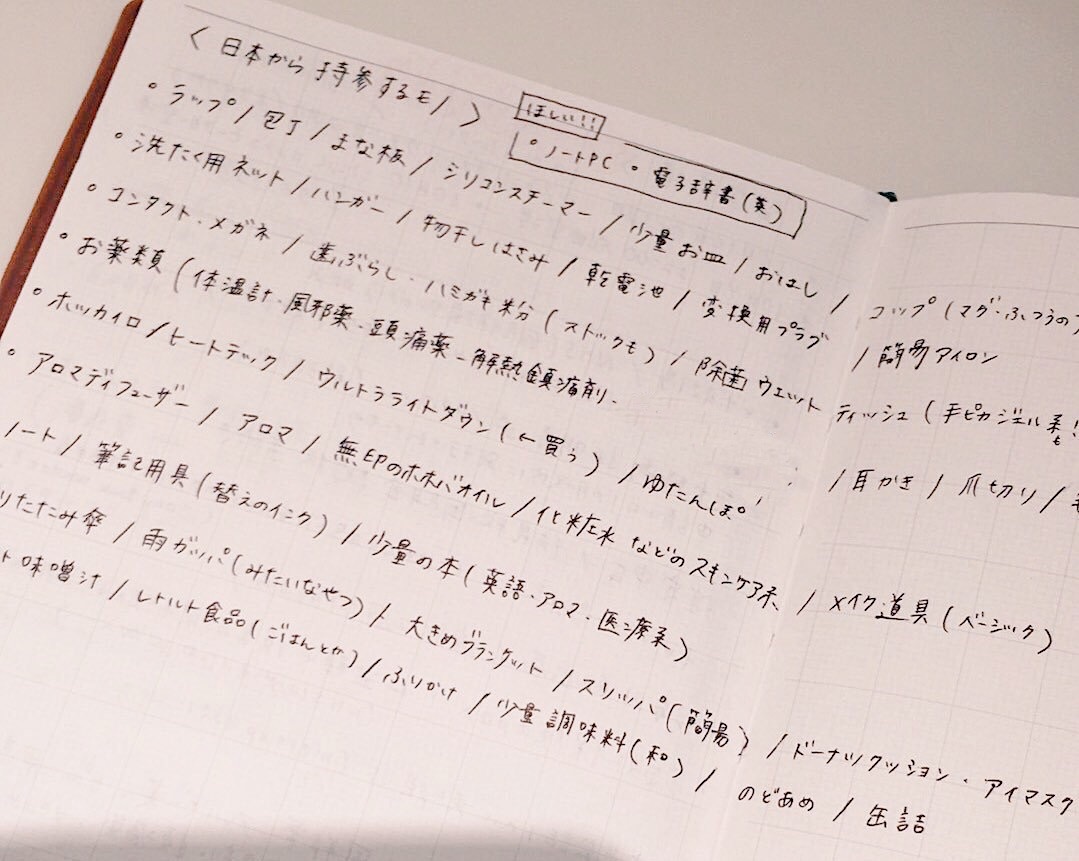 〈日本から持参するモノ〉
ほしい!!
°ノートPC °電子辞書(英)
°ラップ/包丁/まな板/シリコンスチーマー/少量お皿/おはし/コップ(マグ・ふつうの
°洗たく用ネット/ハンガー/物干しはさみ/乾電池/変換用プラグ/簡易アイロン
°コンタクト・メガネ/歯ぶらし・ハミガキ粉(ストックも)/除菌ウェットティッシュ(手ピカジェル系も!
°お薬類(体温計・風邪薬・頭痛薬・解熱鎮痛剤・/耳かき/爪切り/
°ホッカイロ/ヒートテック/ウルトラライトダウン(←買う)/ゆたんぽ
°アロマディフューザー/アロマ/無印のホホバオイル/化粧水などのスキンケア系/メイク道具(ベーシック)
ノート/筆記用具(替えのインク)/少量の本(英語・アロマ・医療系)
りたたみ傘/雨ガッパ(みたいなやつ)/大きめブランケット/スリッパ(簡易)/ドーナツクッション・アイマスク
ト味噌汁/レトルト食品(ごはんとか)/ふりかけ/少量調味料(和)/のどあめ/缶詰